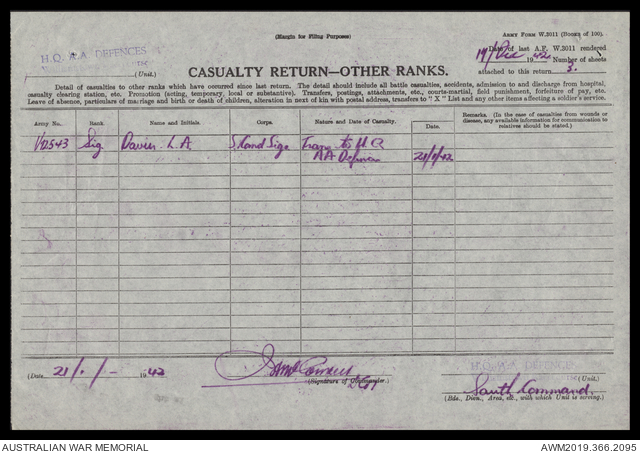 (Margin for Filing Purposes)
ARMY FORM W.3011 (Books of 100).
H.Q. A.A. DEFENCES
(Unit.)
CASUALTY RETURN—OTHER RANKS.
Date of last A.F. W.3011 rendered
1942 Number of sheets
attached to this return 3.
Detail of casualties to other ranks which have occurred since last return. The detail should include all battle casualties, accidents, admission to and discharge from hospital,
casualty clearing station, etc. Promotion (acting, temporary, local or substantive). Transfers, postings, attachments, etc., courts-martial, field punishment, forfeiture of pay, etc.
Leave of absence, particulars of marriage and birth or death of children, alteration in next of kin with postal address, transfers to "X" List and any other items affecting a soldier's service.
Army No. Rank. Name and Initials. Corps. Nature and Date of Casualty. Date. Remarks. (In the case of casualties from wounds or
disease, any available information for communication to
relatives should be stated.)
Sig L.A. Sigs Trans to H.Q.
AA Defences 21/1/42
(Date 21/1/ 1942
(Signature of Commander.)
H.Q. A.A. DEFENCES
(Unit.)
South Command.
(Bde., Divn., Area, etc., with which Unit is serving.)
AUSTRALIAN WAR MEMORIAL
AWM2019.366.2095